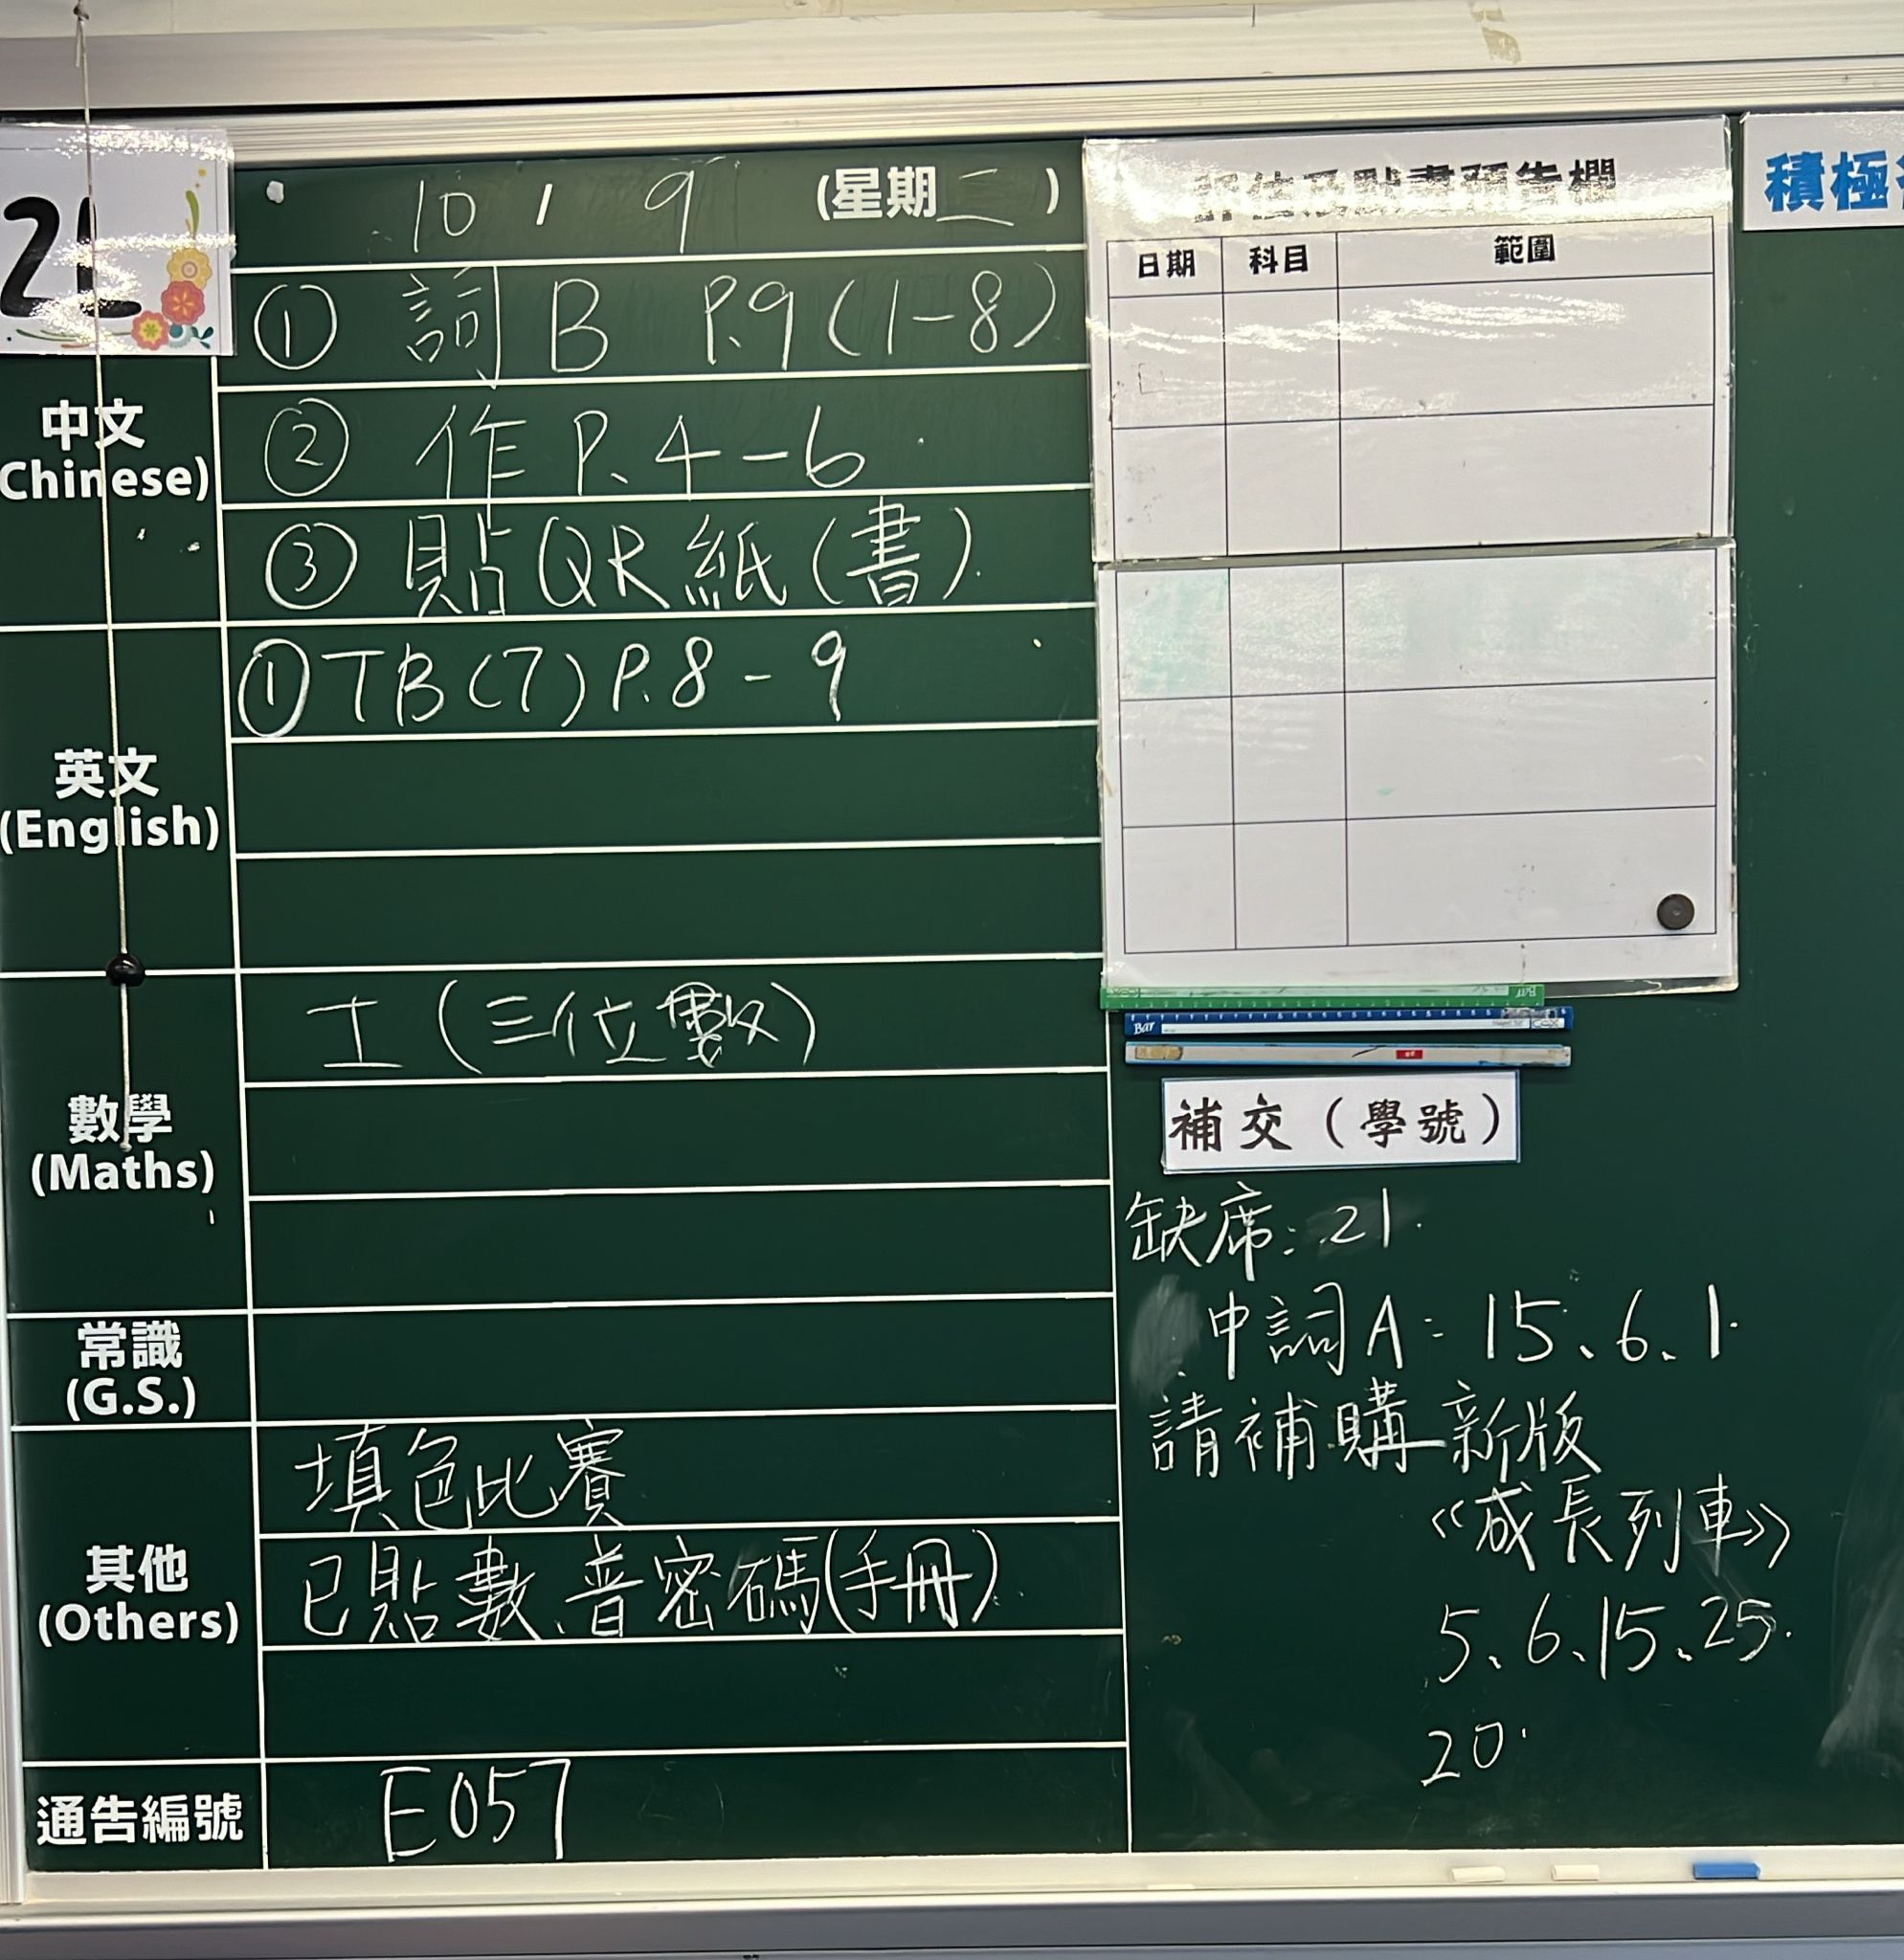 2L
10 / 9 (星期二)
中文
(Chinese)
① 詞 B P.9 (1-8)
② 作 P.4-6
③ 貼QR紙(書)
英文
(English)
① TB(7) P.8-9
數學
(Maths)
工(三位數)
常識
(G.S.)
其他
(Others)
填色比賽
已貼數、普密碼(手冊)
通告編號
E057
預告欄
日期 科目 範圍
積極
補交(學號)
缺席：21
中詞A：15、6、1
請補購新版
《成長列車》
5、6、15、25
20